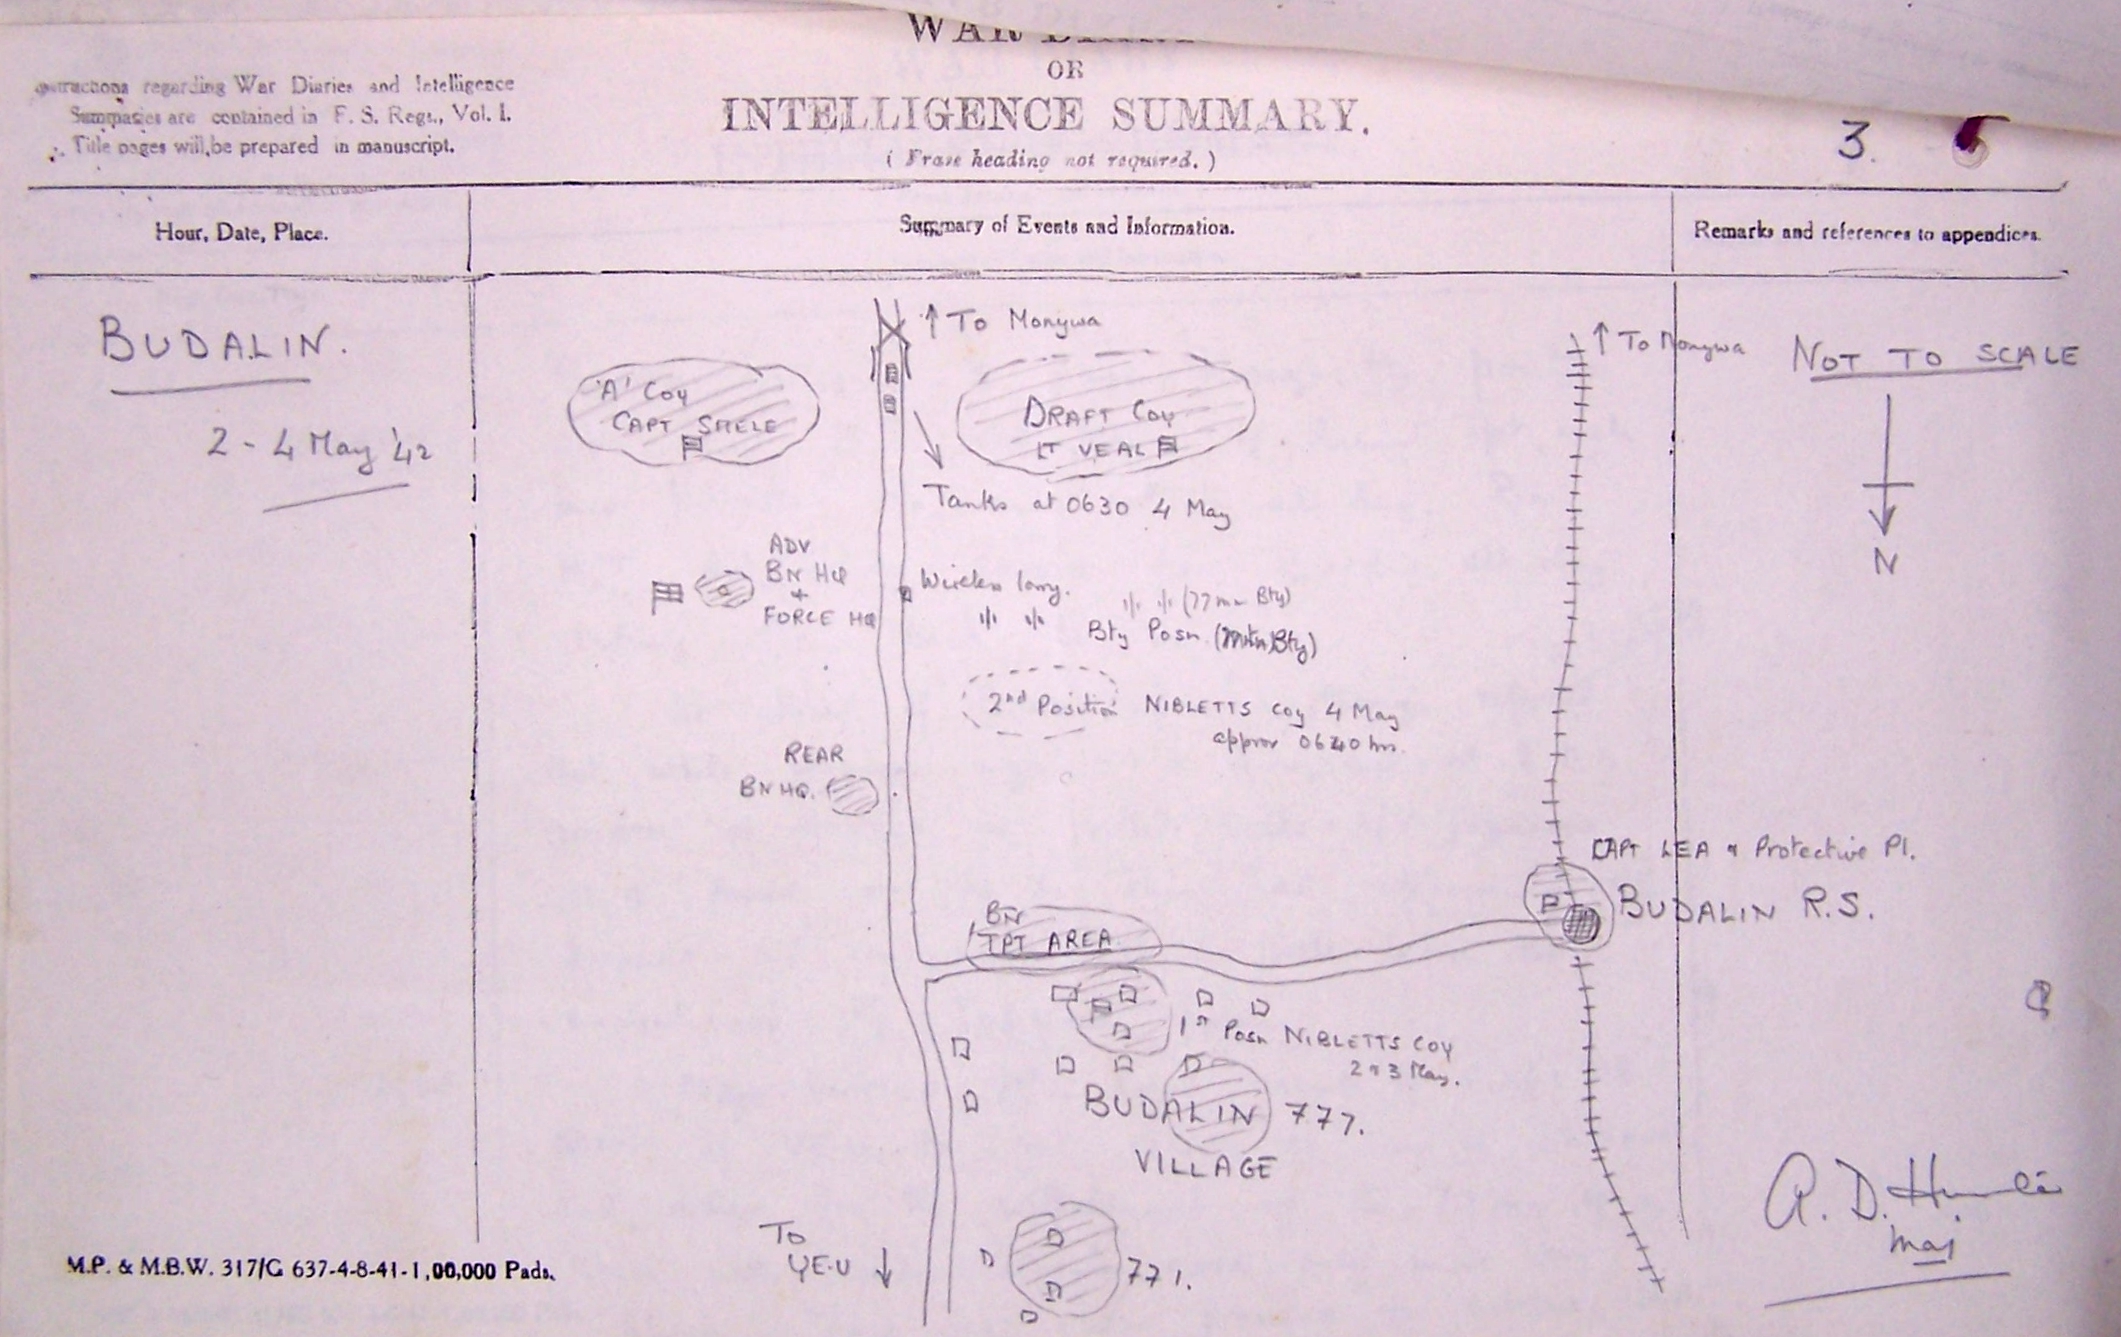 WAR DIARY
OR
INTELLIGENCE SUMMARY.
( Erase heading not required. )
regarding War Diaries and Intelligence
Summaries are contained in F. S. Regs., Vol. I.
Title pages will be prepared in manuscript.
3.
Hour, Date, Place.
Summary of Events and Information.
Remarks and references to appendices.
BUDALIN.
2 - 4 May '42
↑ To Monywa
↑ To Monywa
NOT TO SCALE
N
'A' Coy
CAPT
DRAFT Coy
LT VEAL
Tanks at 0630 4 May
ADV
BN HQ
+
FORCE HQ
Wireless lorry.
(77 mm Bty)
Bty Posn. (Mtn Bty)
2nd Position NIBLETTS Coy 4 May
approx 0640 hrs.
REAR
BN HQ.
CAPT LEA & Protective Pl.
P
BUDALIN R.S.
BN
TPT AREA
1st Posn NIBLETTS COY
2 & 3 May.
BUDALIN 777.
VILLAGE
To
YE-U ↓
771.
A. D.
Maj
M.P. & M.B.W. 317/G 637-4-8-41-1,00,000 Pads.